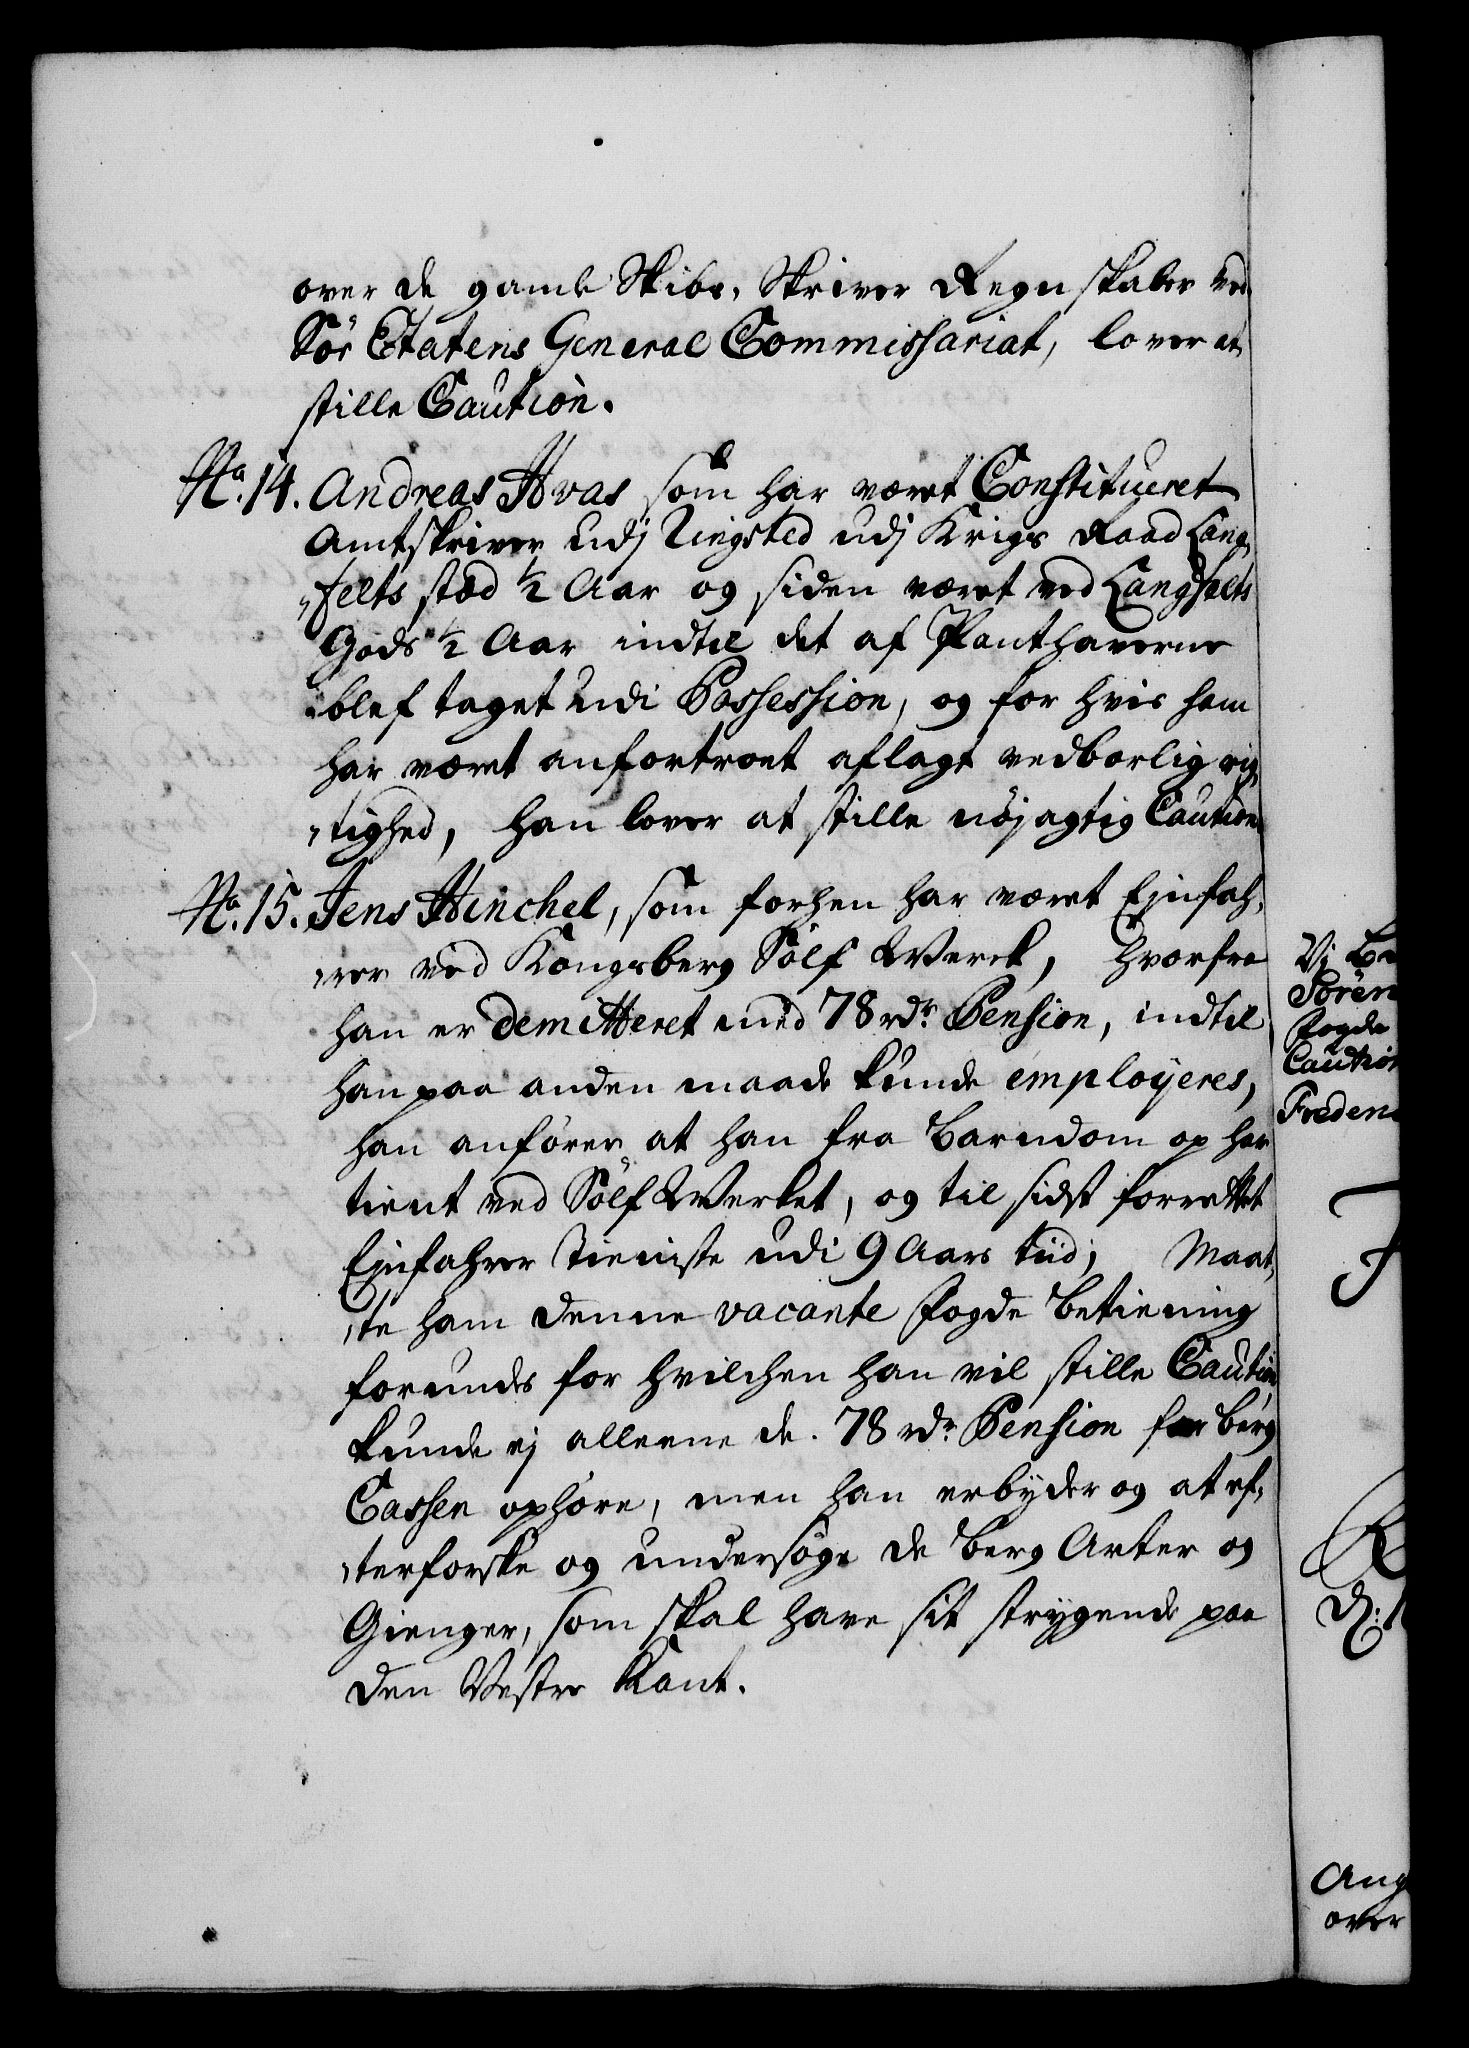 over de gamle Skibs, Skriver Regnskaber ved
Söe Etatens General Commissariat, lover at
stille Caution.
No. 14. Andreas Hvas som har været Constitueret
Amtskriver udj Ringsted udj Krigs Raad Lang,
„felts stæd ½ Aar og siden været ved Langfelts
Gods ½ Aar indtil det af Panthaverne
blef taget udi Possession, og for hvis ham
har været anfortroet aflagt vedborlig rig,
„tighed, han lover at stille nöjagtig Caution
No. 15. Jens Hinchel, som forhen har været Ejnfah,
„rer ved Kongsberg Sölf Werck, hvorfra
han er demitteret med 78 rdr. Pension, indtil
han paa anden maade kunde employeres,
han anförer at han fra Barndom op har
tient ved Sölf Werket, og til sidst forrettet
Ejnfahrer Tieniste udi 9 Aars tiid; Maat,
„te ham denne vacante Fogde betiening
forundes for hvilchen han vil stille Caution
kunde ej alleene de 78 rdr. Pension for berg
Cassen ophöre, men han erbyder og at ef,
„terforske og undersöge de berg Arter og
Gienger, som skal have sit strygende paa
den Vestre Kant.
Vi
Sören
Fogde
Caution
Freder
ang
over